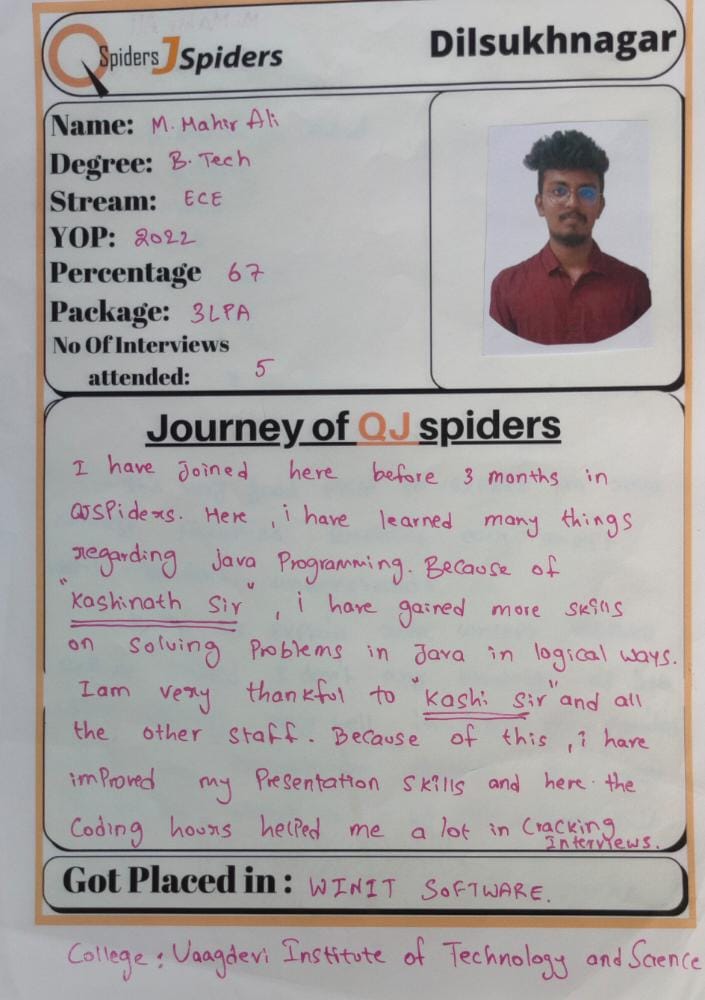 QSpiders JSpiders Dilsukhnagar
Name: M. Mahir Ali
Degree: B. Tech
Stream: ECE
YOP: 2022
Percentage 67
Package: 3LPA
No Of Interviews
attended: 5
Journey of QJ spiders
I have Joined here before 3 months in
QJSPiders. Here , i have learned many things
regarding java Programming. Because of
"Kashinath Sir" , i have gained more skills
on Solving Problems in Java in logical ways.
Iam very thankful to "Kashi Sir" and all
the other staff. Because of this , i have
improved my Presentation Skills and here the
Coding hours helped me a lot in Cracking
Interviews.
Got Placed in : WINIT SOFTWARE.
College : Vaagdevi Institute of Technology and Science